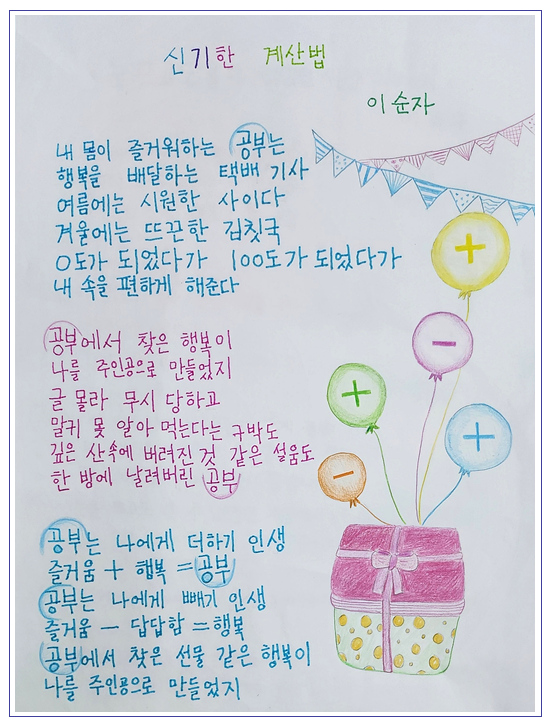 신기한 계산법
이순자
내 몸이 즐거워하는 공부는
행복을 배달하는 택배 기사
여름에는 시원한 사이다
겨울에는 뜨끈한 김칫국
0도가 되었다가 100도가 되었다가
내 속을 편하게 해준다
공부에서 찾은 행복이
나를 주인공으로 만들었지
글 몰라 무시 당하고
말귀 못 알아 먹는다는 구박도
깊은 산속에 버려진 것 같은 설움도
한 방에 날려버린 공부
공부는 나에게 더하기 인생
즐거움 + 행복 = 공부
공부는 나에게 빼기 인생
즐거움 - 답답함 = 행복
공부에서 찾은 선물 같은 행복이
나를 주인공으로 만들었지
+
-
+
+
-